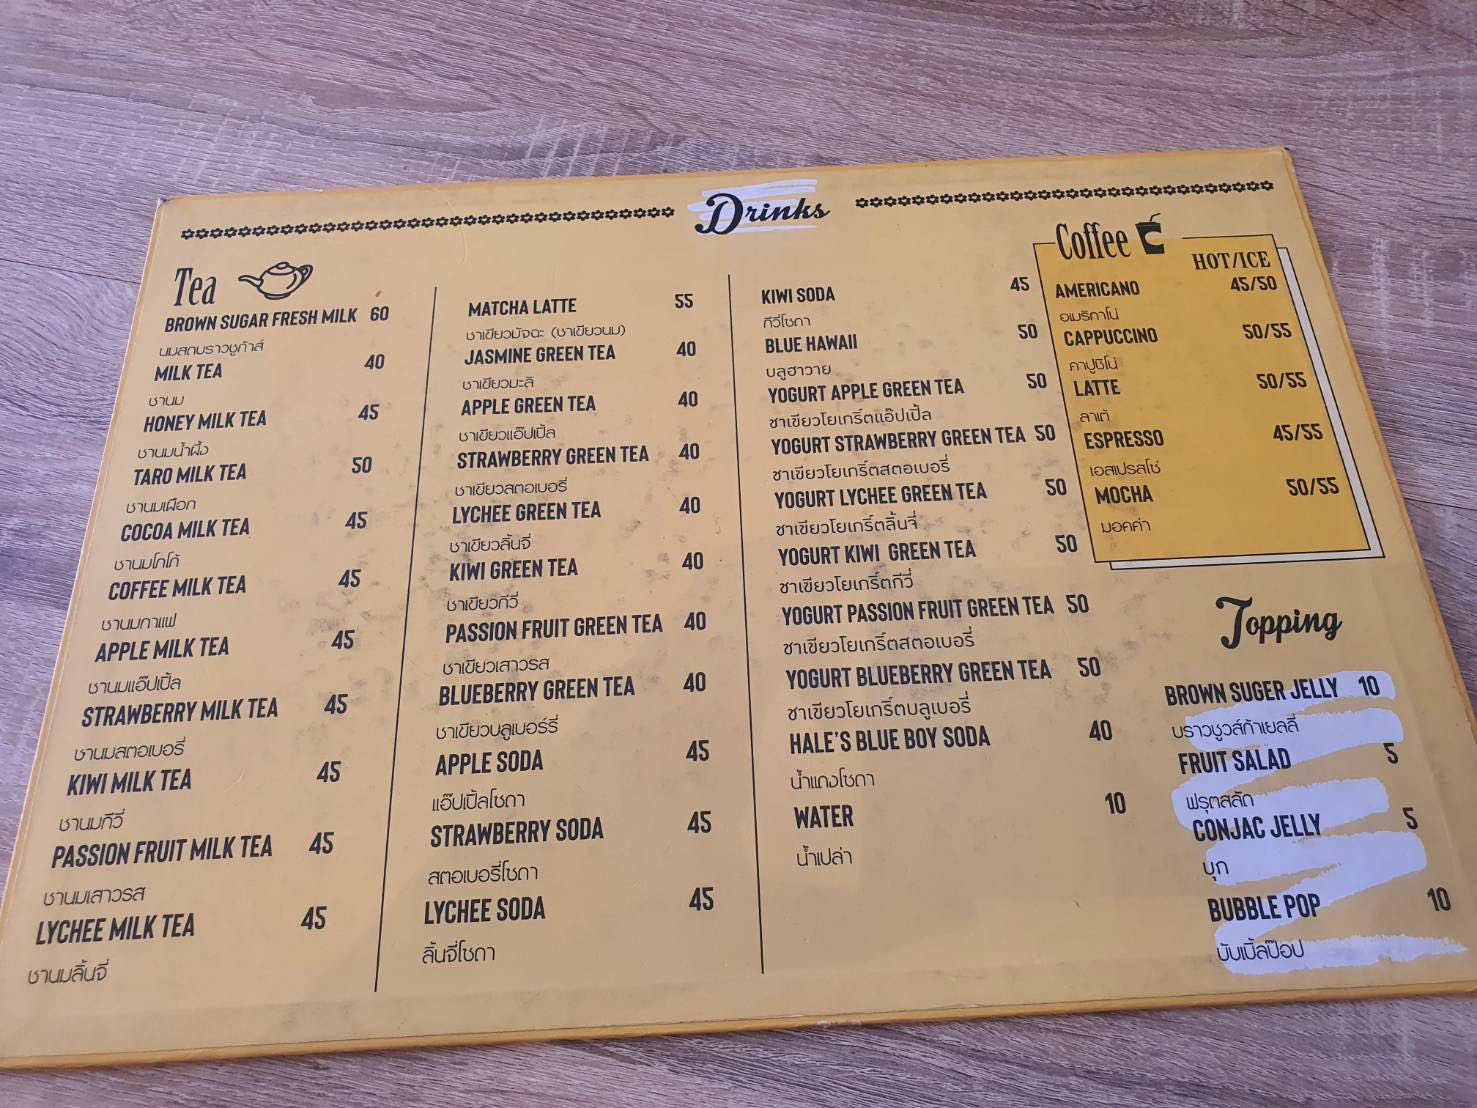 Drinks
Tea
BROWN SUGAR FRESH MILK 60
นมสดบราวชูก้าส์
MILK TEA 40
ชานม
HONEY MILK TEA 45
ชานมน้ำผึ้ง
TARO MILK TEA 50
ชานมเผือก
COCOA MILK TEA 45
ชานมโกโก้
COFFEE MILK TEA 45
ชานมกาแฟ
APPLE MILK TEA 45
ชานมแอ๊ปเปิ้ล
STRAWBERRY MILK TEA 45
ชานมสตอเบอรี่
KIWI MILK TEA 45
ชานมกีวี่
PASSION FRUIT MILK TEA 45
ชานมเสาวรส
LYCHEE MILK TEA 45
ชานมลิ้นจี่
MATCHA LATTE 55
ชาเขียวมัจฉะ (ชาเขียวนม)
JASMINE GREEN TEA 40
ชาเขียวมะลิ
APPLE GREEN TEA 40
ชาเขียวแอ๊ปเปิ้ล
STRAWBERRY GREEN TEA 40
ชาเขียวสตอเบอรี่
LYCHEE GREEN TEA 40
ชาเขียวลิ้นจี่
KIWI GREEN TEA 40
ชาเขียวกีวี่
PASSION FRUIT GREEN TEA 40
ชาเขียวเสาวรส
BLUEBERRY GREEN TEA 40
ชาเขียวบลูเบอร์รี่
APPLE SODA 45
แอ๊ปเปิ้ลโซดา
STRAWBERRY SODA 45
สตอเบอรี่โซดา
LYCHEE SODA 45
ลิ้นจี่โซดา
KIWI SODA 45
กีวีโซดา
BLUE HAWAII 50
บลูฮาวาย
YOGURT APPLE GREEN TEA 50
ชาเขียวโยเกริ์ตแอ๊ปเปิ้ล
YOGURT STRAWBERRY GREEN TEA 50
ชาเขียวโยเกริ์ตสตอเบอรี่
YOGURT LYCHEE GREEN TEA 50
ชาเขียวโยเกริ์ตลิ้นจี่
YOGURT KIWI GREEN TEA 50
ชาเขียวโยเกริ์ตกีวี่
YOGURT PASSION FRUIT GREEN TEA 50
ชาเขียวโยเกริ์ตสตอเบอรี่
YOGURT BLUEBERRY GREEN TEA 50
ชาเขียวโยเกริ์ตบลูเบอรี่
HALE'S BLUE BOY SODA 40
น้ำแดงโซดา
WATER 10
น้ำเปล่า
Coffee
HOT/ICE
AMERICANO 45/50
อเมริกาโน่
CAPPUCCINO 50/55
คาปูชิโน่
LATTE 50/55
ลาเต้
ESPRESSO 45/55
เอสเปรสโซ่
MOCHA 50/55
มอคค่า
Topping
BROWN SUGER JELLY 10
บราวชูวส์ก้าเยลลี่
FRUIT SALAD 5
ฟรุตสลัด
CONJAC JELLY 5
บุก
BUBBLE POP 10
บับเบิ้ลป๊อป